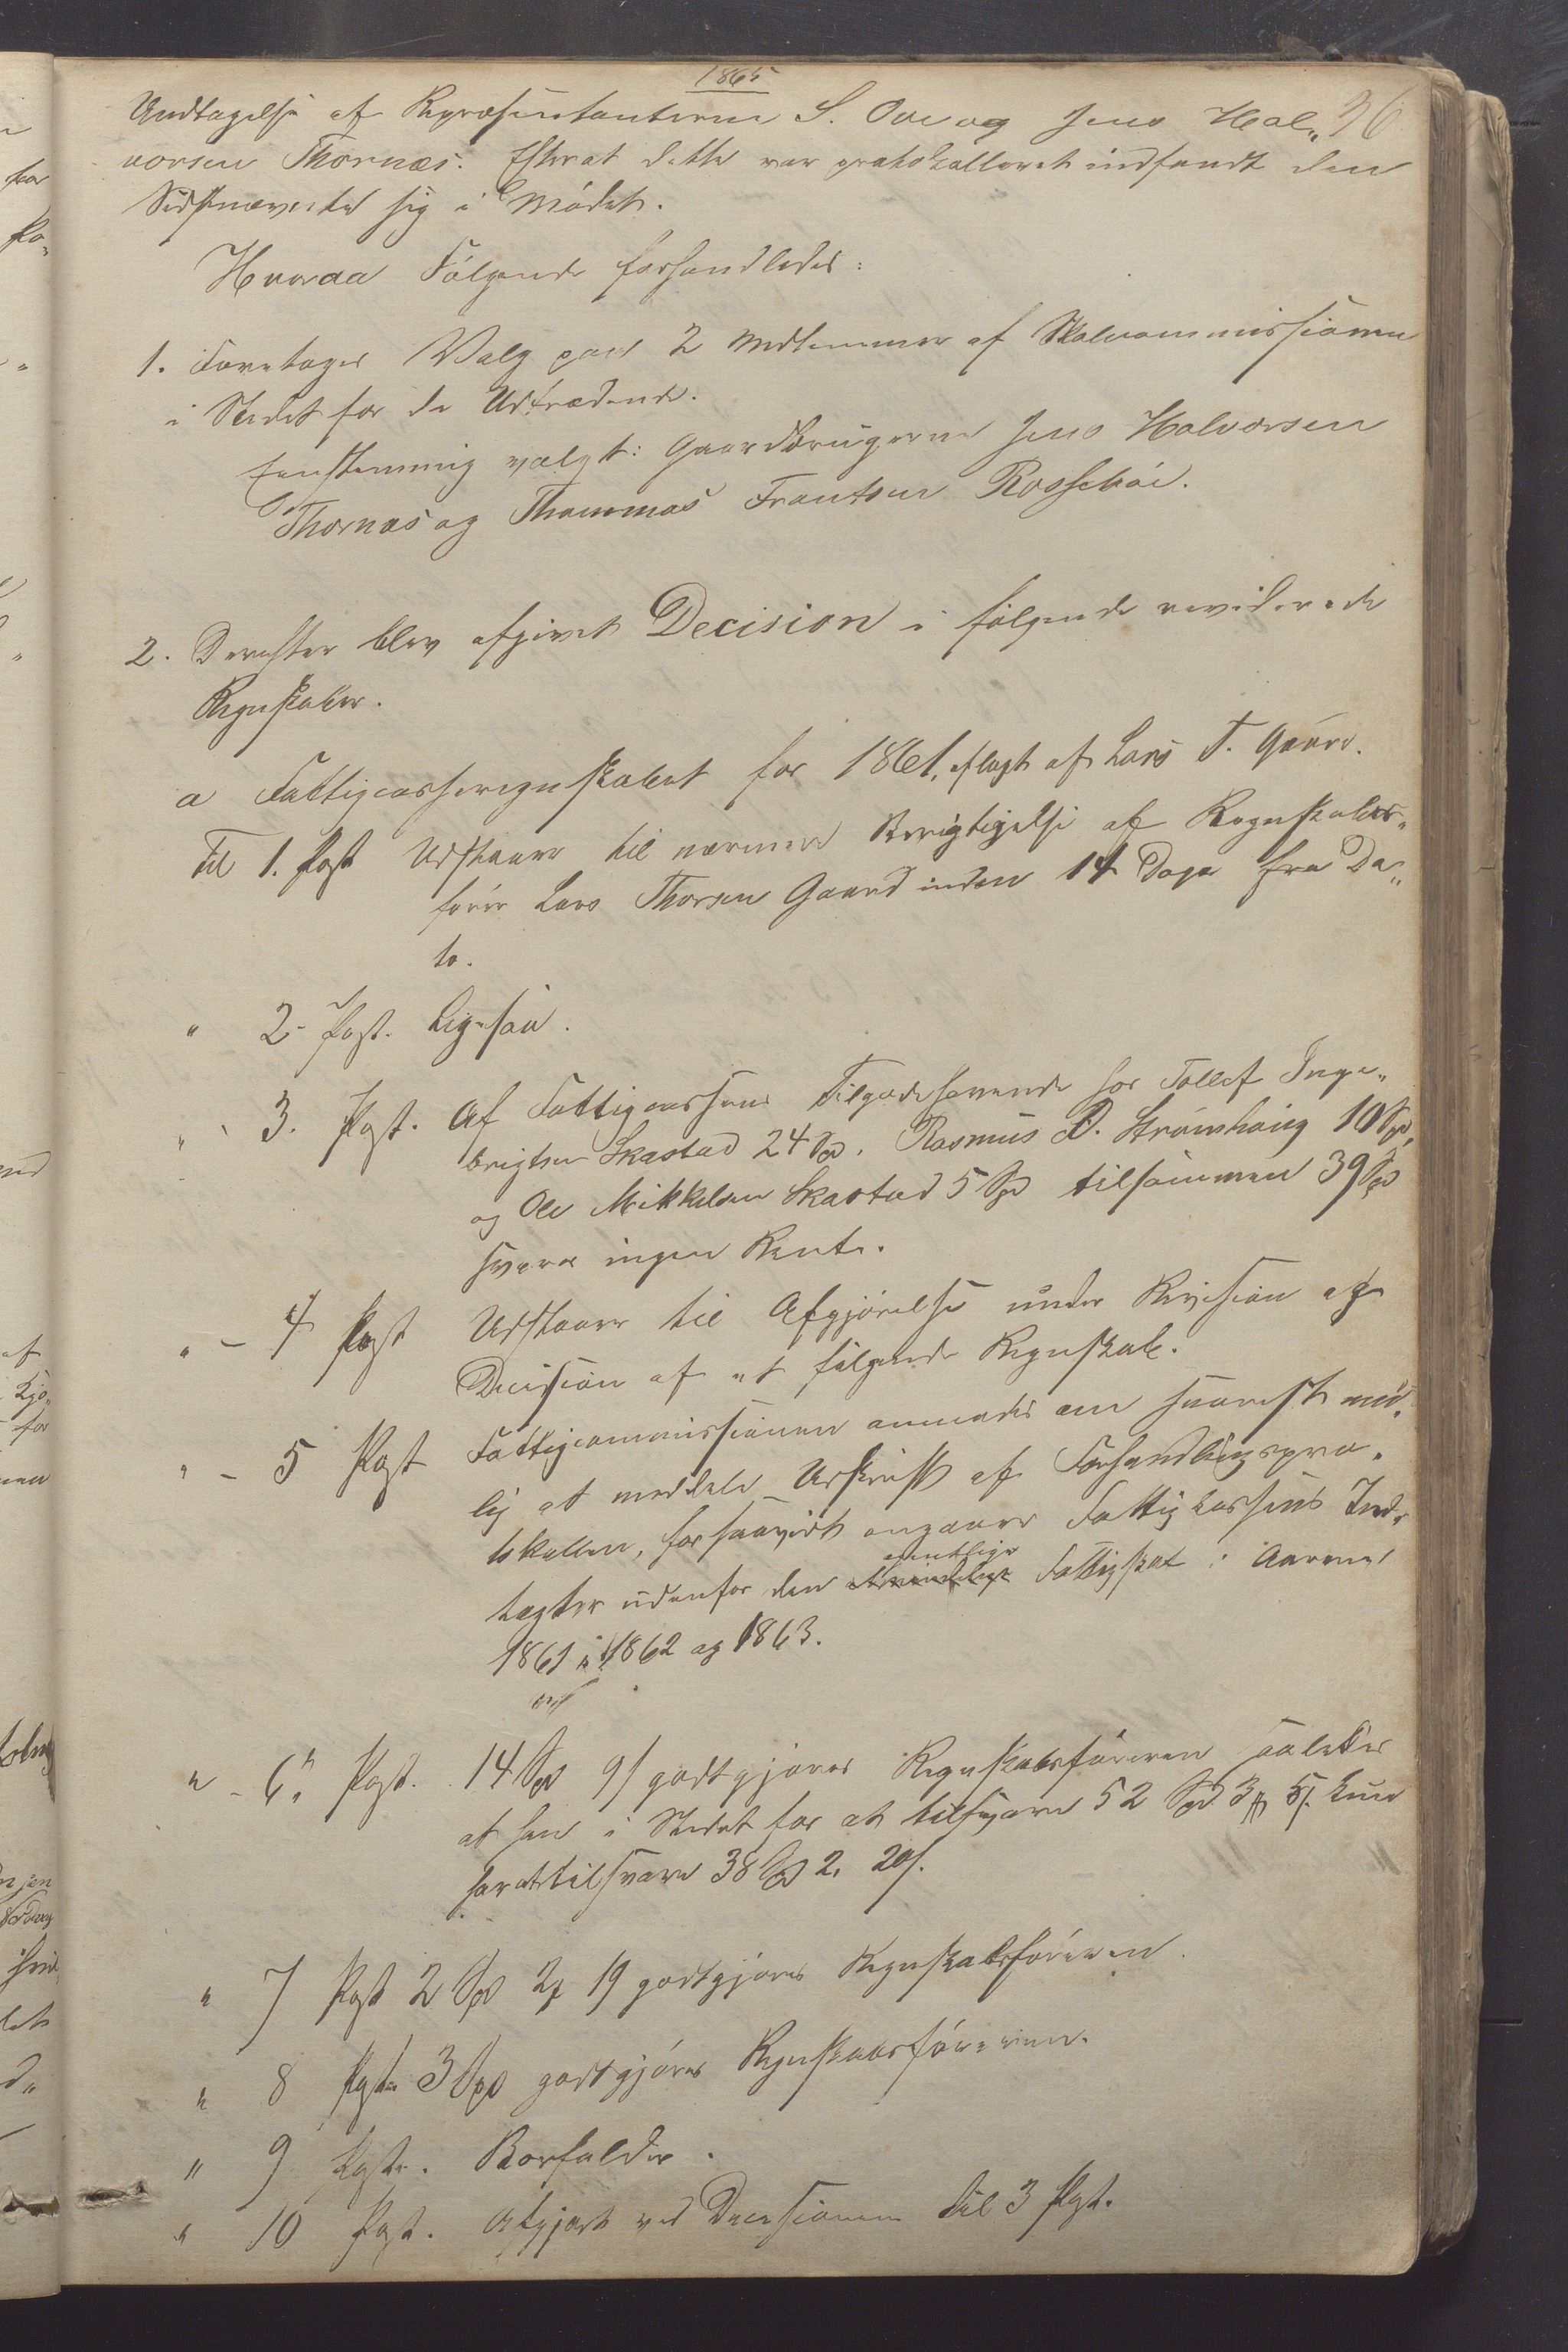 1865
36
Undtagelse af Repræsentanterne S. Ove og Jens Hal„
vorsen Thornæs. Efterat dette var protokolleret indfandt den
Sidstnævnte sig i Mødet.
Hvorpaa Følgende forhandledes:
1. Foretoges Valg paa 2 Medlemmer af Skolecommissionen
i Stedet for de Udtrædende.
Eenstemmig valgt: Gaardbrugerne Jens Halvorsen
Thornæs og Thommas Frantsen Rossebøe.
2. Derefter blev afgivet Decision i følgende reviderede
Regnskaber.
a Fattigcasseregnskabet for 1861, aflagt af Lars T. Gaard.
Til 1. Post Udstaaer til nærmere Berigtigelse af Regnskabs„
fører Lars Thorsen Gaard inden 14 Dage fra Da„
to.
" 2 Post. Ligesaa.
" 3. Post. Af Fattigcassens Tilgodehavende hos Tollef Inge„
brigtsen Skastad 24 Spd, Rasmus D. Strømhoug 10 Spd,
og Ole Mikkelsen Skastad 5 Spd tilsammen 39 Spd
svares ingen Rente.
" - 4 Post Udstaaer til Afgjørelse under Revision og
Decision af et følgende Regnskab.
" - 5 Post Fattigcommissionen anmodes om snarest mu„
lig at meddele Udskrift af Forhandlingspro„
tokollen, forsaavidt angaaer Fattigkassens Ind„
tægter udenfor den egentlige Fattigskat i Aarene
1861 1862 og 1863.
" - 6 Post. 14 Spd 9 s godtgjøres Regnskabsføreren saaledes
at han i Stedet for at tilsvare 52 Spd 3 5 s. kun
har at tilsvare 38 Spd 2, 20 s.
" 7 Post 2 Spd 2 19 godtgjøres Regnskabsføreren.
" 8 Post 3 Spd godtgjøres Regnskabsføreren.
" 9 Post. Bortfalder.
" 10 Post. Afgjort ved Decisionen til 3 Post.